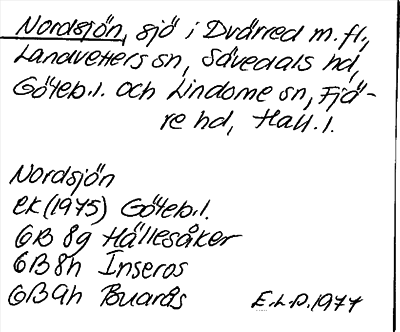 Nordsjön, sjö i Dvärred m.fl.,
Landvetters sn, Sävedals hd,
Göteb.l. och Lindome sn, Fjä-
re hd, Hall.l.
Nordsjön
ek (1975) Göteb.l.
6B 8g Hällesåker
6B 8h Inseros
6B 9h Buarås
E.L-P. 1977